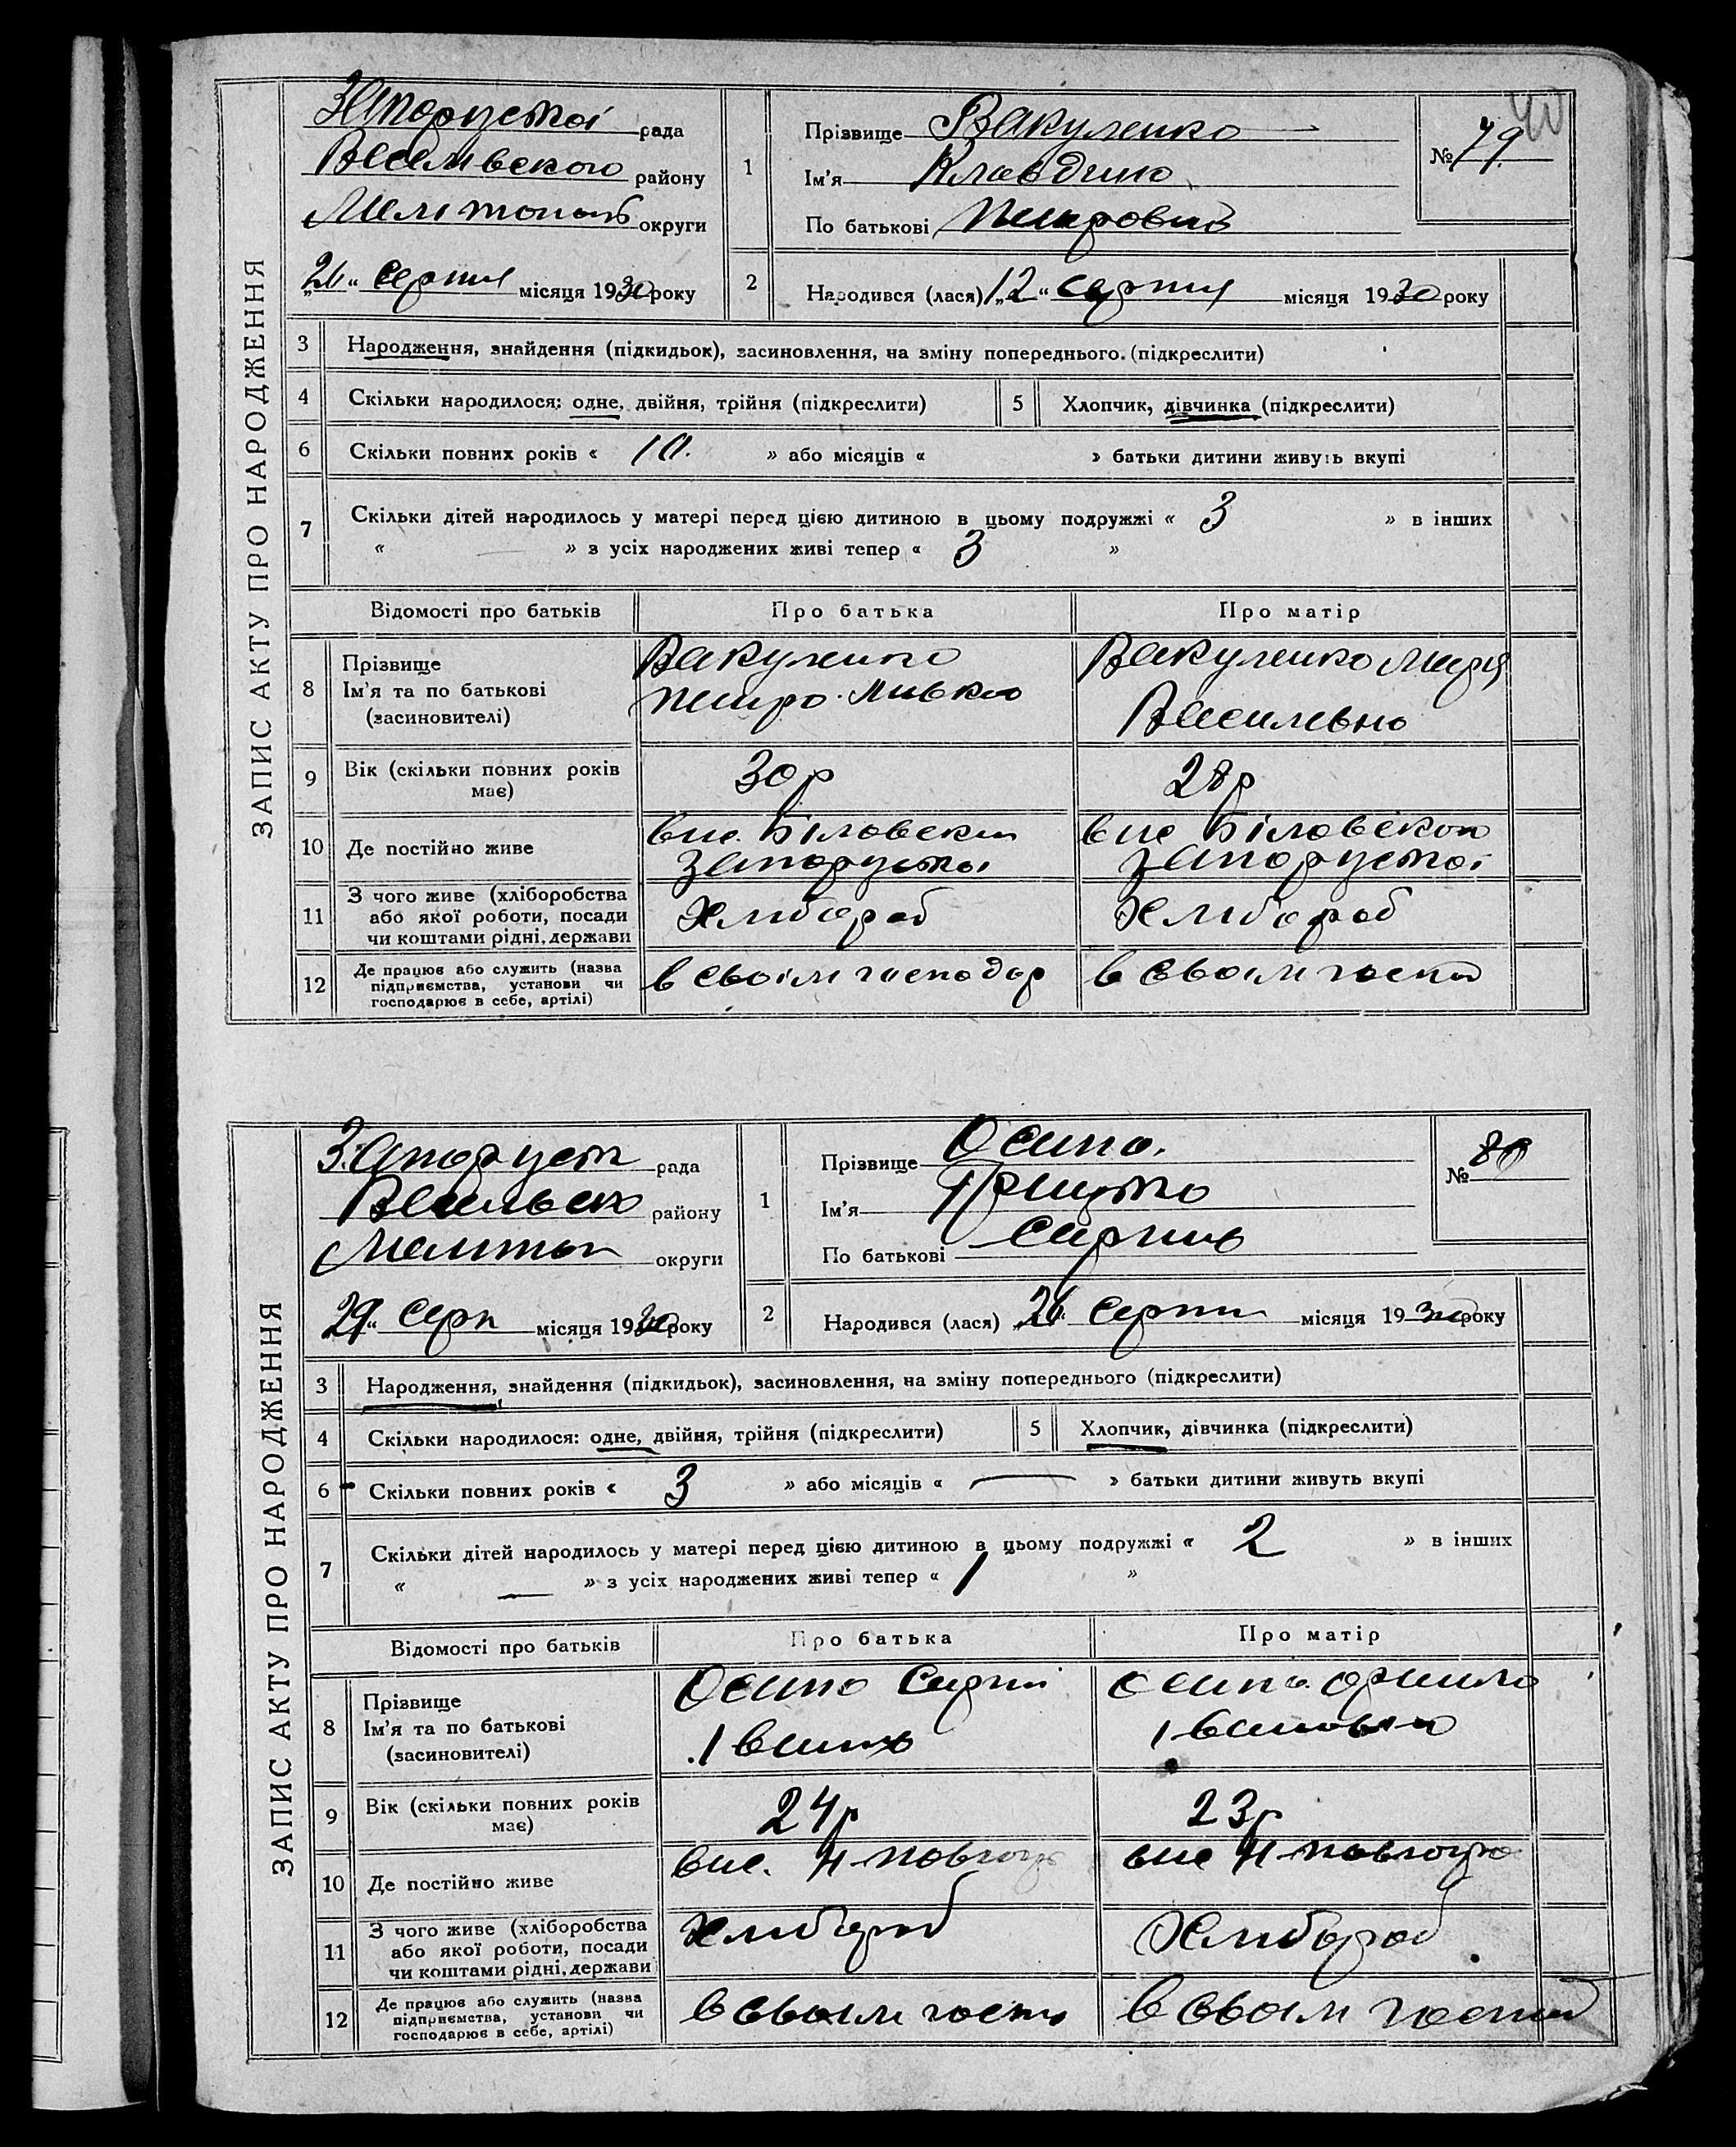 40
ЗАПИС АКТУ ПРО НАРОДЖЕННЯ
Запоруської рада
Веселивского району
Мелітополь округи
„26“ серпня місяця 1930 року
1 Прізвище Вакуленко
Ім'я Клавдию
По батькові Петровна
№ 79
2 Народився (лася) „12“ серпня місяця 1930 року
3 Народження, знайдення (підкидьок), засиновлення, на зміну попереднього. (підкреслити)
4 Скільки народилося: одне, двійня, трійня (підкреслити)
5 Хлопчик, дівчинка (підкреслити)
6 Скільки повних років « 10. » або місяців « » батьки дитини живуть вкупі
7 Скільки дітей народилось у матері перед цією дитиною в цьому подружжі « 3 » в інших
« — » з усіх народжених живі тепер « 3 »
Відомості про батьків Про батька Про матір
8 Прізвище
Ім'я та по батькові
(засиновителі)
Вакуленко
Петро
Вакуленко Марія
Василевно
9 Вік (скільки повних років має)
30р
28р
10 Де постійно живе
вис. Біловской
Запоруської
вис Біловской
Запоруської
11 З чого живе (хліборобства
або якої роботи, посади
чи коштами рідні, держави
Хлибороб
Хлибороб
12 Де працює або служить (назва
підприємства, установи чи
господарює в себе, артілі)
в своім господар
в своім госпо
ЗАПИС АКТУ ПРО НАРОДЖЕННЯ
Запоруст рада
Веселивск району
Мелитоп округи
„29“ серп місяця 1930 року
1 Прізвище Осипо.
Ім'я
По батькові Сергиив
№ 80
2 Народився (лася) „26“ серпн місяця 1930 року
3 Народження, знайдення (підкидьок), засиновлення, на зміну попереднього (підкреслити)
4 Скільки народилося: одне, двійня, трійня (підкреслити)
5 Хлопчик, дівчинка (підкреслити)
6 Скільки повних років « 3 » або місяців « — » батьки дитини живуть вкупі
7 Скільки дітей народилось у матері перед цією дитиною в цьому подружжі « 2 » в інших
« — » з усіх народжених живі тепер « 1 »
Відомості про батьків Про батька Про матір
8 Прізвище
Ім'я та по батькові
(засиновителі)
Осипо Сергий
Іванив
Осипо
Івановно
9 Вік (скільки повних років має)
24р
23р
10 Де постійно живе
вис.
вис
11 З чого живе (хліборобства
або якої роботи, посади
чи коштами рідні, держави
Хлибороб
Хлибороб
12 Де працює або служить (назва
підприємства, установи чи
господарює в себе, артілі)
в своім госпо
в своім госпо